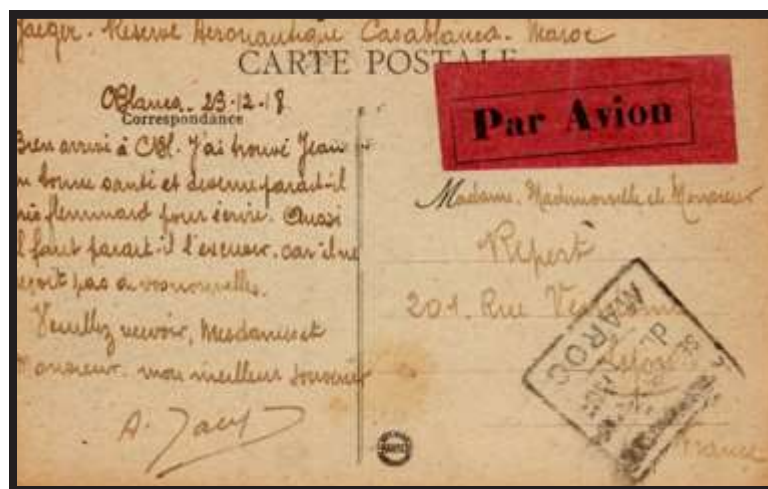 Jaeger - Réserve Aéronautique Casablanca - Maroc
CARTE POSTALE
CBlanca. 23-12-18.
Correspondance
Bien arrivé à CBl. J'ai trouvé Jean
en bonne santé et devenu parait-il
très flemmard pour écrire. Aussi
il faut parait-il l'excuser, car il ne
reçoit pas de vos nouvelles.
Veuillez recevoir, Mesdames et
Monsieur, mon meilleur souvenir
A.
Par Avion
Madame, Mademoiselle et Monsieur
201. Rue
France
MAROC